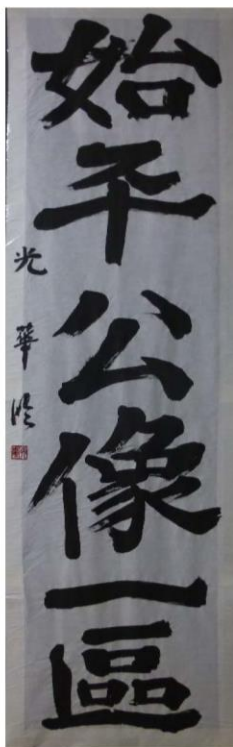 始平公像一區
光華臨